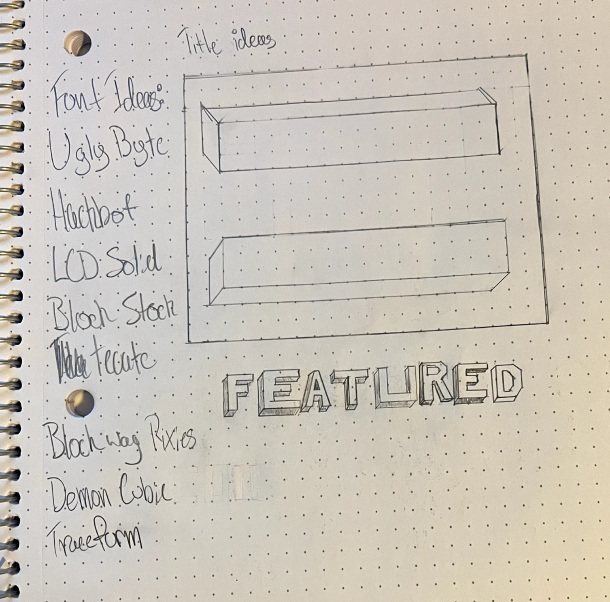 Title ideas
Font Ideas:
Ugly Byte
Hachbot
LCD Solid
Block Stock
tecate
FEATURED
Blockway Pixies
Demon Cubic
Traceform